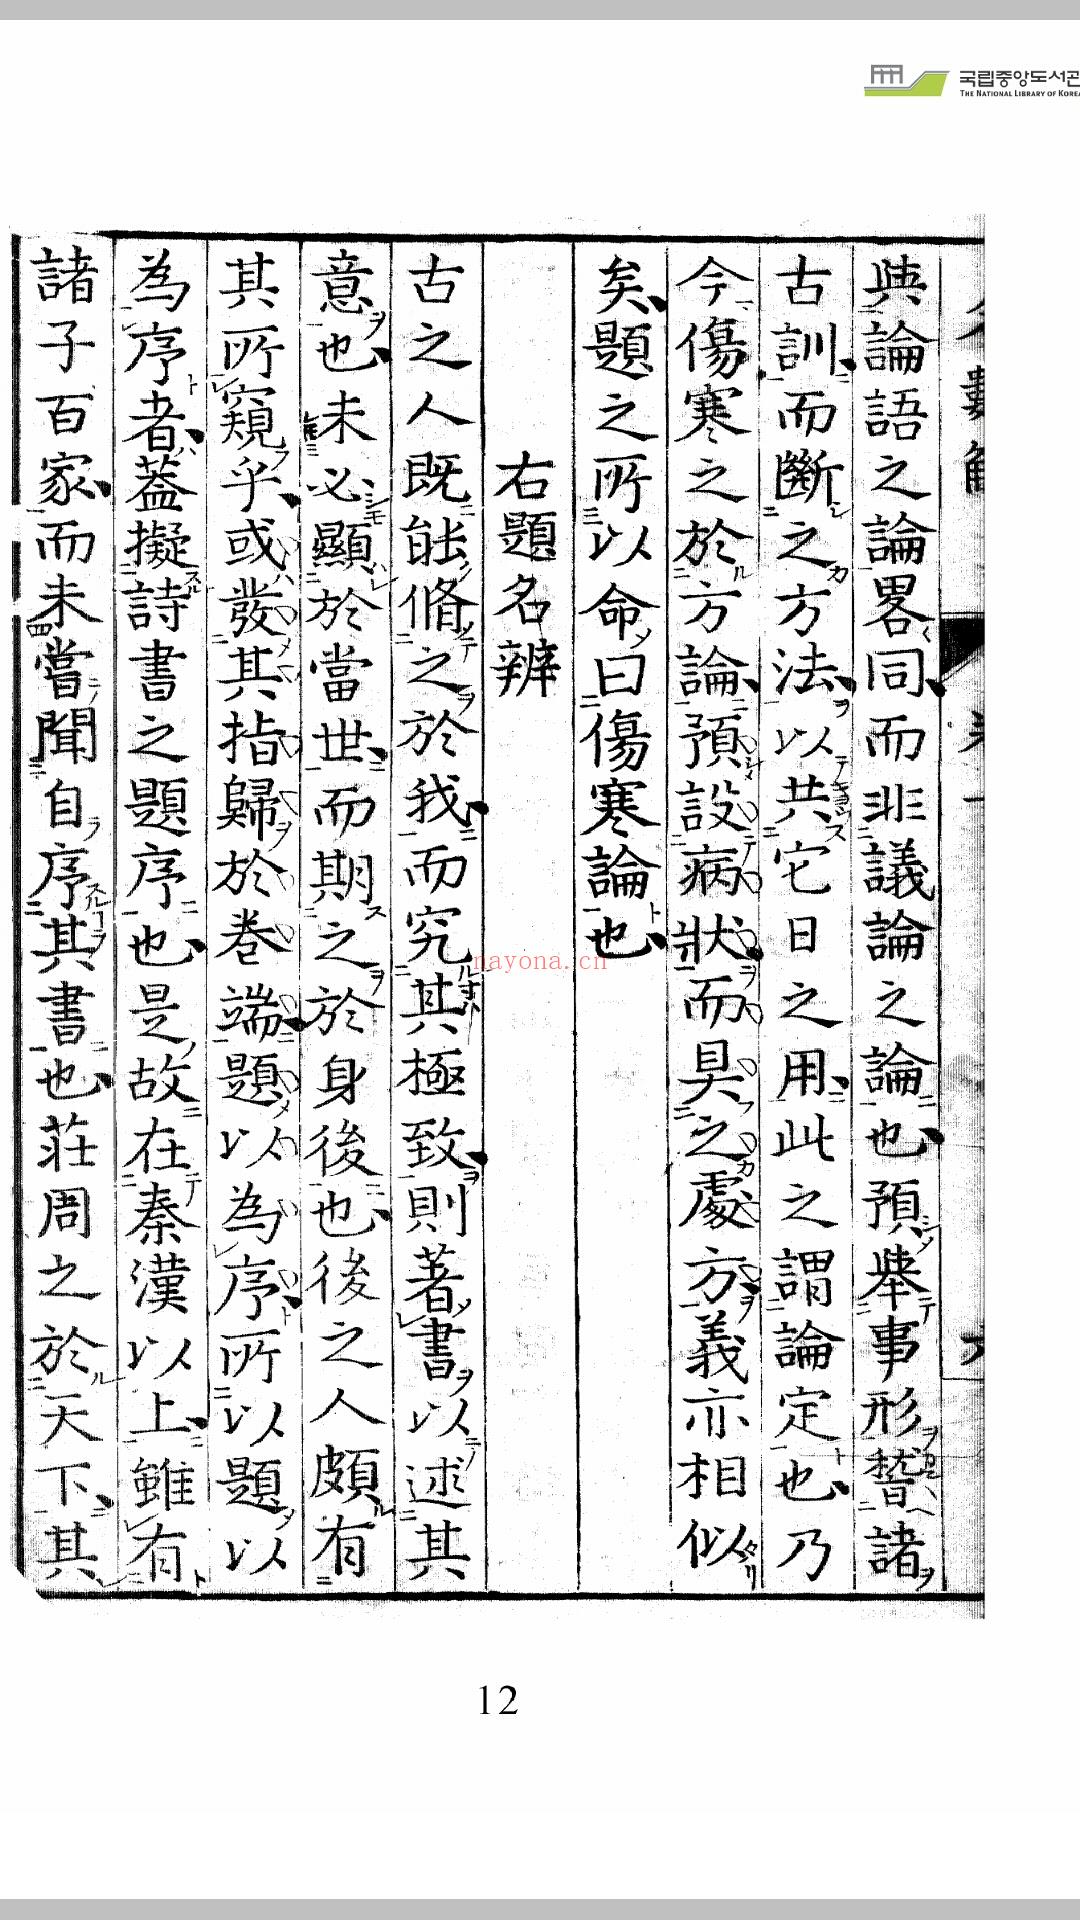 국립중앙도서관
THE NATIONAL LIBRARY OF KOREA
與論語之論畧同而非議論之論也預舉事形稽諸
古訓而斷之方法以共它日之用此之謂論定也乃
今傷寒之於方論預設病狀而具之處方義亦相似
矣題之所以命曰傷寒論也
右題名辨
古之人既能脩之於我而究其極致則著書以述其
意也未必顯於當世而期之於身後也後之人頗有
其所窺乎或發其指歸於卷端題以為序所以題以
為序者蓋擬詩書之題序也是故在秦漢以上雖有
諸子百家而未嘗聞自序其書也莊周之於天下其
nayona.cn
12